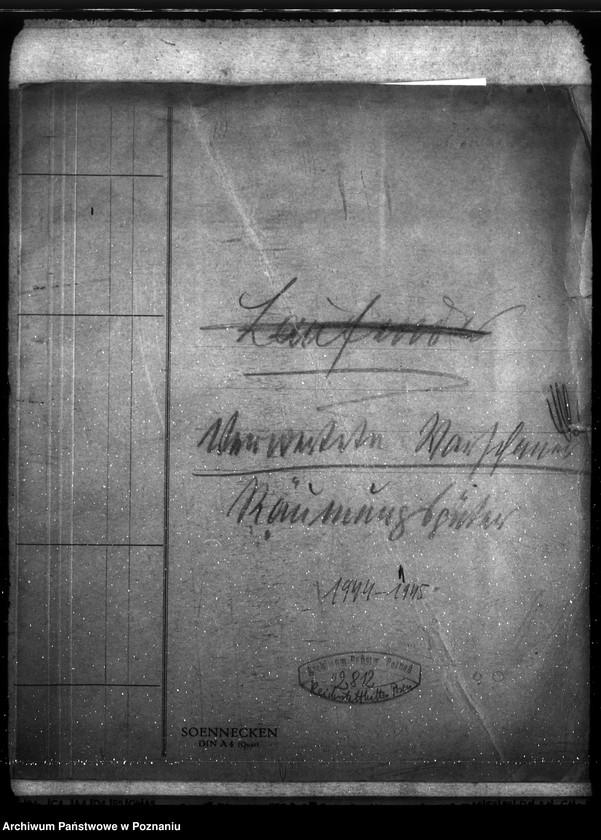 Laufender
Verwertete Warschauer
Räumungsgüter
1944-1945
Archiwum Państw. Poznań
2812
Reichsstatthalter Posen
SOENNECKEN
DIN A4 (Quart)
Archiwum Państwowe w Poznaniu